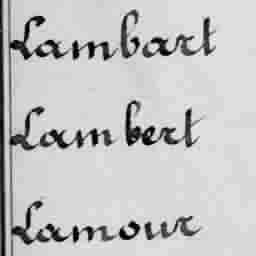 Lambart
Lambert
Lamour